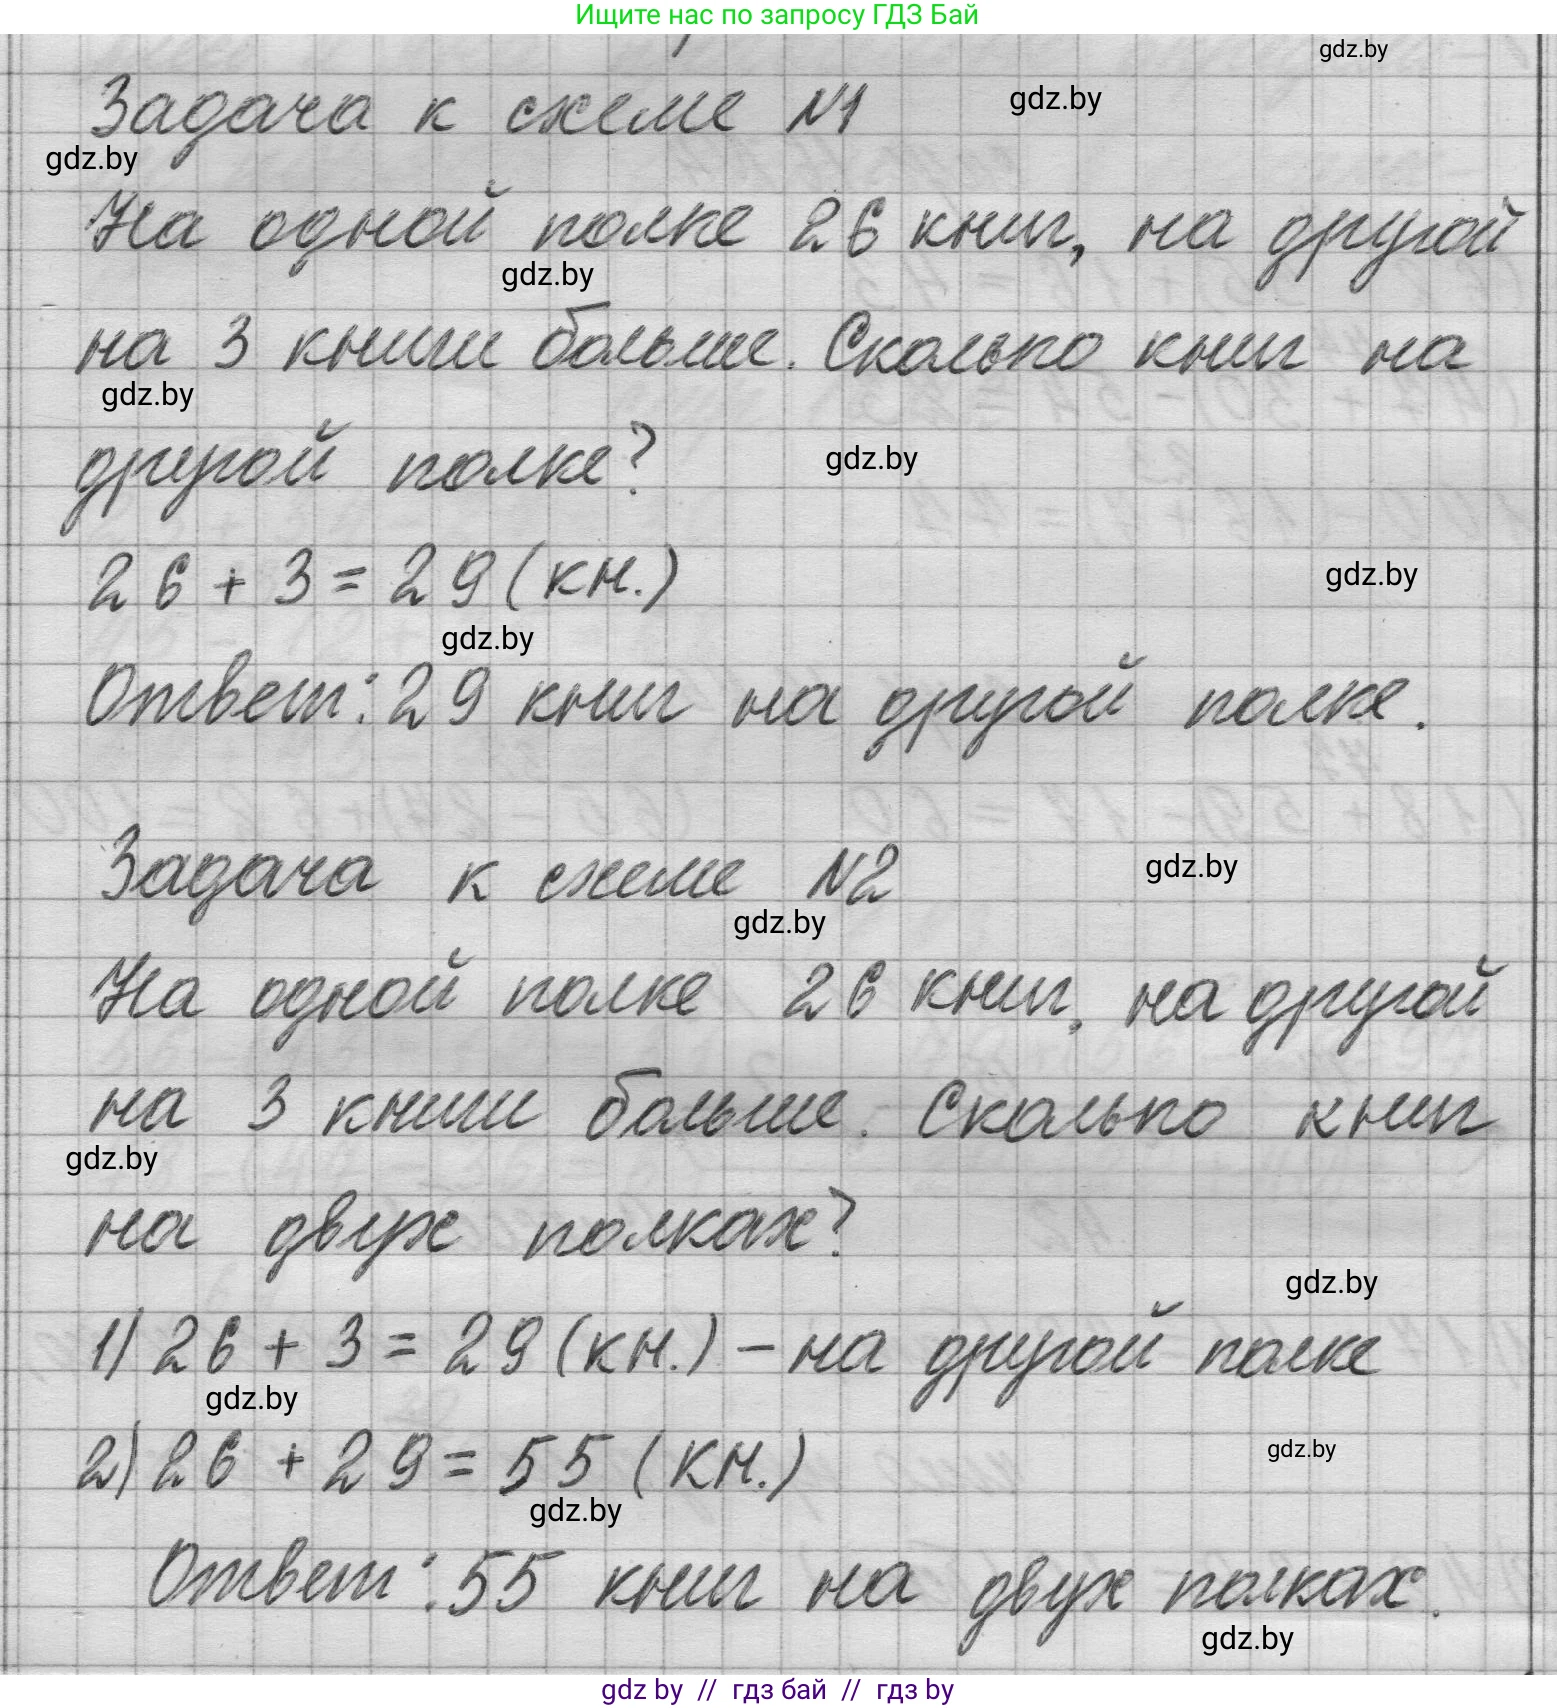 Ищите нас по запросу ГДЗ Бай
gdz.by
Задача к схеме N1
gdz.by
gdz.by
На одной полке 26 книг, на другой
gdz.by
на 3 книги больше. Сколько книг на
gdz.by
другой полке?
gdz.by
26 + 3 = 29 (кн.)
gdz.by
gdz.by
Ответ: 29 книг на другой полке.
Задача к схеме N2
gdz.by
gdz.by
На одной полке 26 книг, на другой
на 3 книги больше. Сколько книг
gdz.by
на двух полках?
gdz.by
1) 26 + 3 = 29 (кн.) – на другой полке
gdz.by
2) 26 + 29 = 55 (кн.)
gdz.by
gdz.by
Ответ: 55 книг на двух полках.
gdz.by
gdz by // гдз бай // gdz by